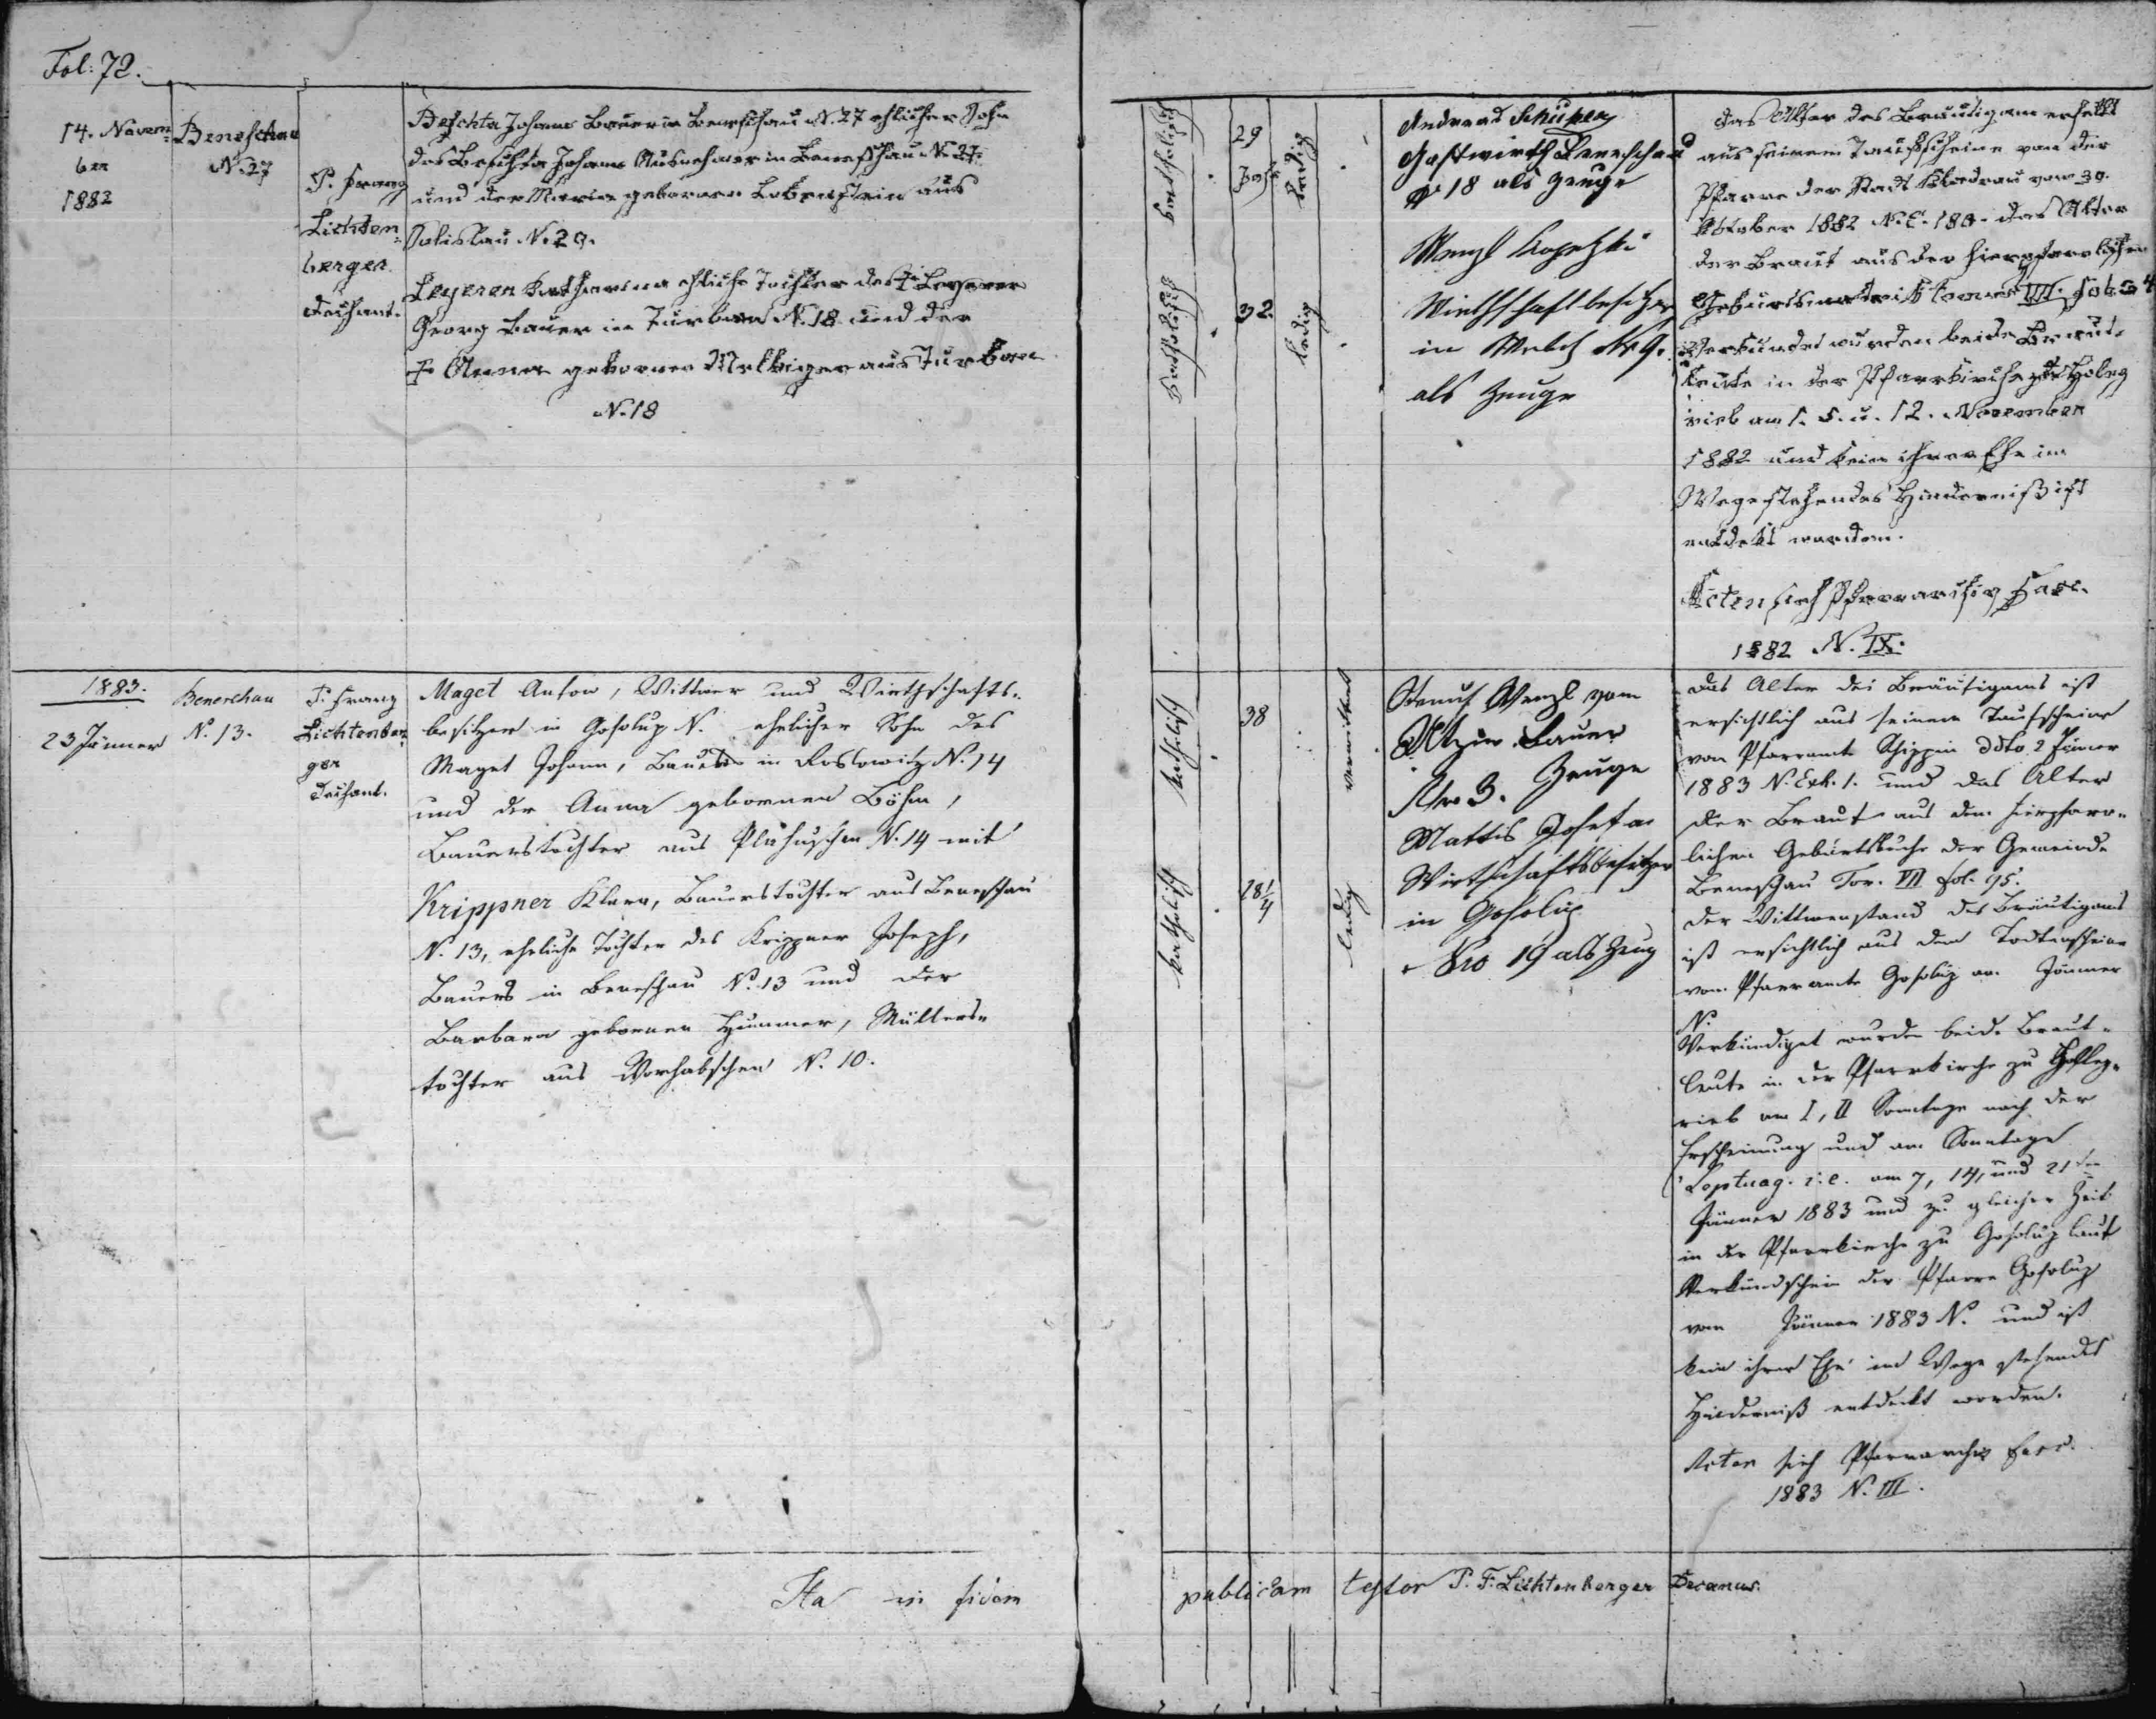 Fol: 72.
14. Novem-
ber
1882
Beneschau
N. 27
P. Franz
Lichten-
berger
Dechant.
Beschta Johann Bauer in Beneschau N. 27 ehlicher Sohn
des Beschta Johann Ausnehmer in Beneschau N. 27.
und der Maria geborenen aus
N. 29.
Leyerer Katharina ehliche Tochter des † Leyerer
Georg Bauer in Turban N. 18 und der
† Anna geborner aus Turban
N. 18
katholisch
29
Jahr
ledig
katholisch
32
ledig
Andreas Schuher
Gastwirth Beneschau
N 18 als Zeuge
Wenzl
Wirthschaftbesitzer
in
als Zeuge
das Alter des Bräutigam erhellt
aus seinem Taufscheine von der
Pfarre der Stadt Kladrau vom 30.
Oktober 1882 N. E. 180. das Alter
der Braut aus der hierpfarrlichen
Geburtsmatrik tomus VII. Fol.
Verkündet wurden beide Braut-
leute in der Pfarrkirche zu Holez-
rieb am 1. 5. u. 12. November
1882 und kein ihrer Ehe im
Wege stehendes Hinderniß ist
entdekt worden.
Acten sieh Pfarrarchiv Fasc.
1882 N. IX.
1883.
23 Jänner
Beneschau
N. 13.
P. Franz
Lichtenber-
ger
Dechant.
Maget Anton, Wittwer und Wirthschafts-
besitzer in Gosolup N. ehelicher Sohn des
Maget Johann, Bauers in Roslowitz N. 14
und der Anna gebornen Böhm,
Bauerstochter aus N. 14 mit
Krippner Klara, Bauerstochter aus Beneschau
N. 13, eheliche Tochter des Krippner Joseph,
Bauers in Beneschau N. 13 und der
Barbara gebornen Hummer, Müllers-
tochter aus Worhabschen N. 10.
katholisch
38
verwittwet
katholisch
28 1/4
ledig
Wenzl vom
Bauer
Nr 3. Zeuge
Mattis Josef
Wirthschaftsbesitzer
in Gosolup
Nro 19 als Zeug
Das Alter des Bräutigams ist
ersichtlich aus seinem Taufscheine
von Pfarramte Schippin ddto. 2 Jänner
1883 N. Exh. 1. und das Alter
der Braut aus dem hierpfarr-
lichen Geburtsbuche der Gemeinde
Beneschau Tom. VII fol. 95.
Der Wittwerstand des Bräutigams
ist ersichtlich aus dem Todtenscheine
vom Pfarramte Gosolup Jänner
N.
Verkündiget wurden beide Braut-
leute in der Pfarrkirche zu Holez-
rieb am I, II Sonntage nach der
Erscheinung und am Sonntage
Septuag. i. e. am 7, 14, und 21ten
Jänner 1883 und zu gleicher Zeit
in der Pfarrkirche zu Gosolup laut
Verkündschein der Pfarre Gosolup
vom Jänner 1883 N. und ist
kein ihrer Ehe im Wege stehendes
Hinderniß entdeckt worden.
Acten sieh Pfarrarchiv Fasc.
1883 N. III.
Ita in fidem publicam testor P. F. Lichtenberger Decanus.